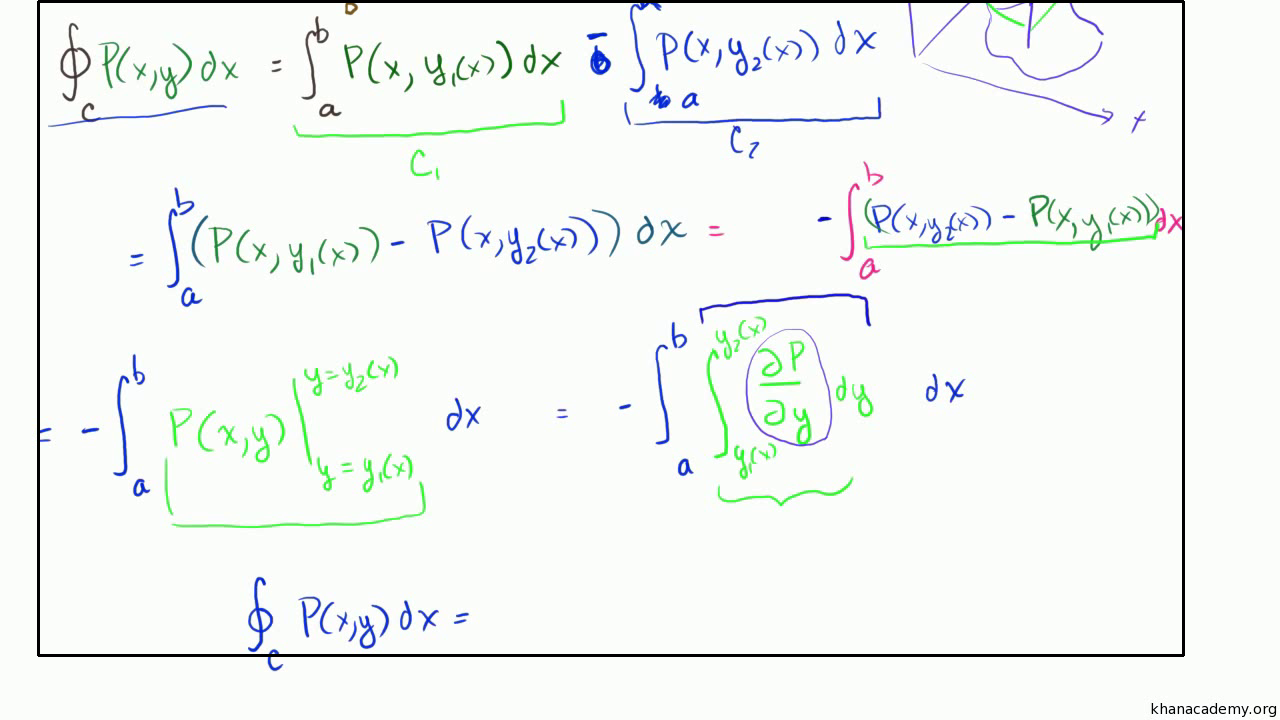 ∮_C P(x,y) dx = ∫_a^b P(x, y₁(x)) dx - ∫_a P(x, y₂(x)) dx
C₁ C₂ x
= ∫_a^b (P(x, y₁(x)) - P(x, y₂(x))) dx = - ∫_a^b (P(x, y₂(x)) - P(x, y₁(x))) dx
= - ∫_a^b P(x,y) |_{y = y₁(x)}^{y = y₂(x)} dx = - ∫_a^b ∫_{y₁(x)}^{y₂(x)} ∂P/∂y dy dx
∮_C P(x,y) dx =
khanacademy.org